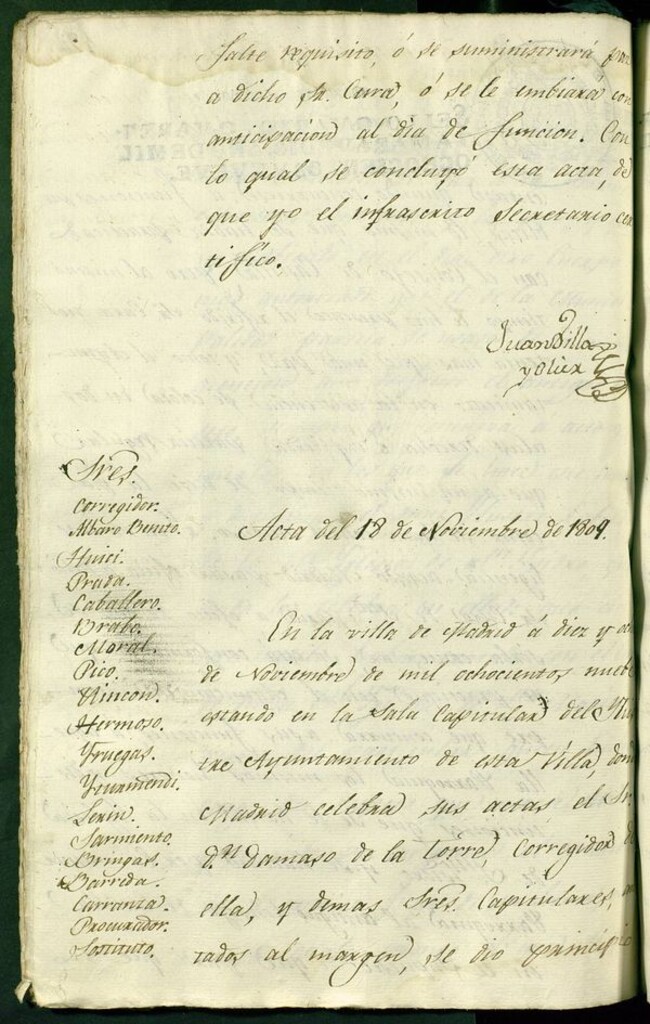 falte requisito, ó se suministrará
a dicho Sr. Cura, ó se le embiará con
anticipacion al dia de funcion. Con
lo qual se concluyó esta acta, de
que yo el infrascrito Secretario cer
tifico.
Juan Villa
y Olier
Sres.
Corregidor.
Albaro Benito.
Huici.
Prada.
Caballero.
Brabo.
Moral.
Pico.
Rincon.
Hermoso.
Yruegas.
Yturmendi.
Serin.
Sarmiento.
Bringas.
Barreda.
Carranza.
Procurador.
Sostituto.
Acta del 18 de Noviembre de 1809.
En la villa de Madrid á diez y
de Noviembre de mil ochocientos nuebe
estando en la Sala Capitular del Ylus
tre Ayuntamiento de esta Villa, donde
Madrid celebra sus actas, el Sr.
dn. Damaso de la Torre, Corregidor de
ella, y demas Sres. Capitulares,
tados al margen, se dio principio